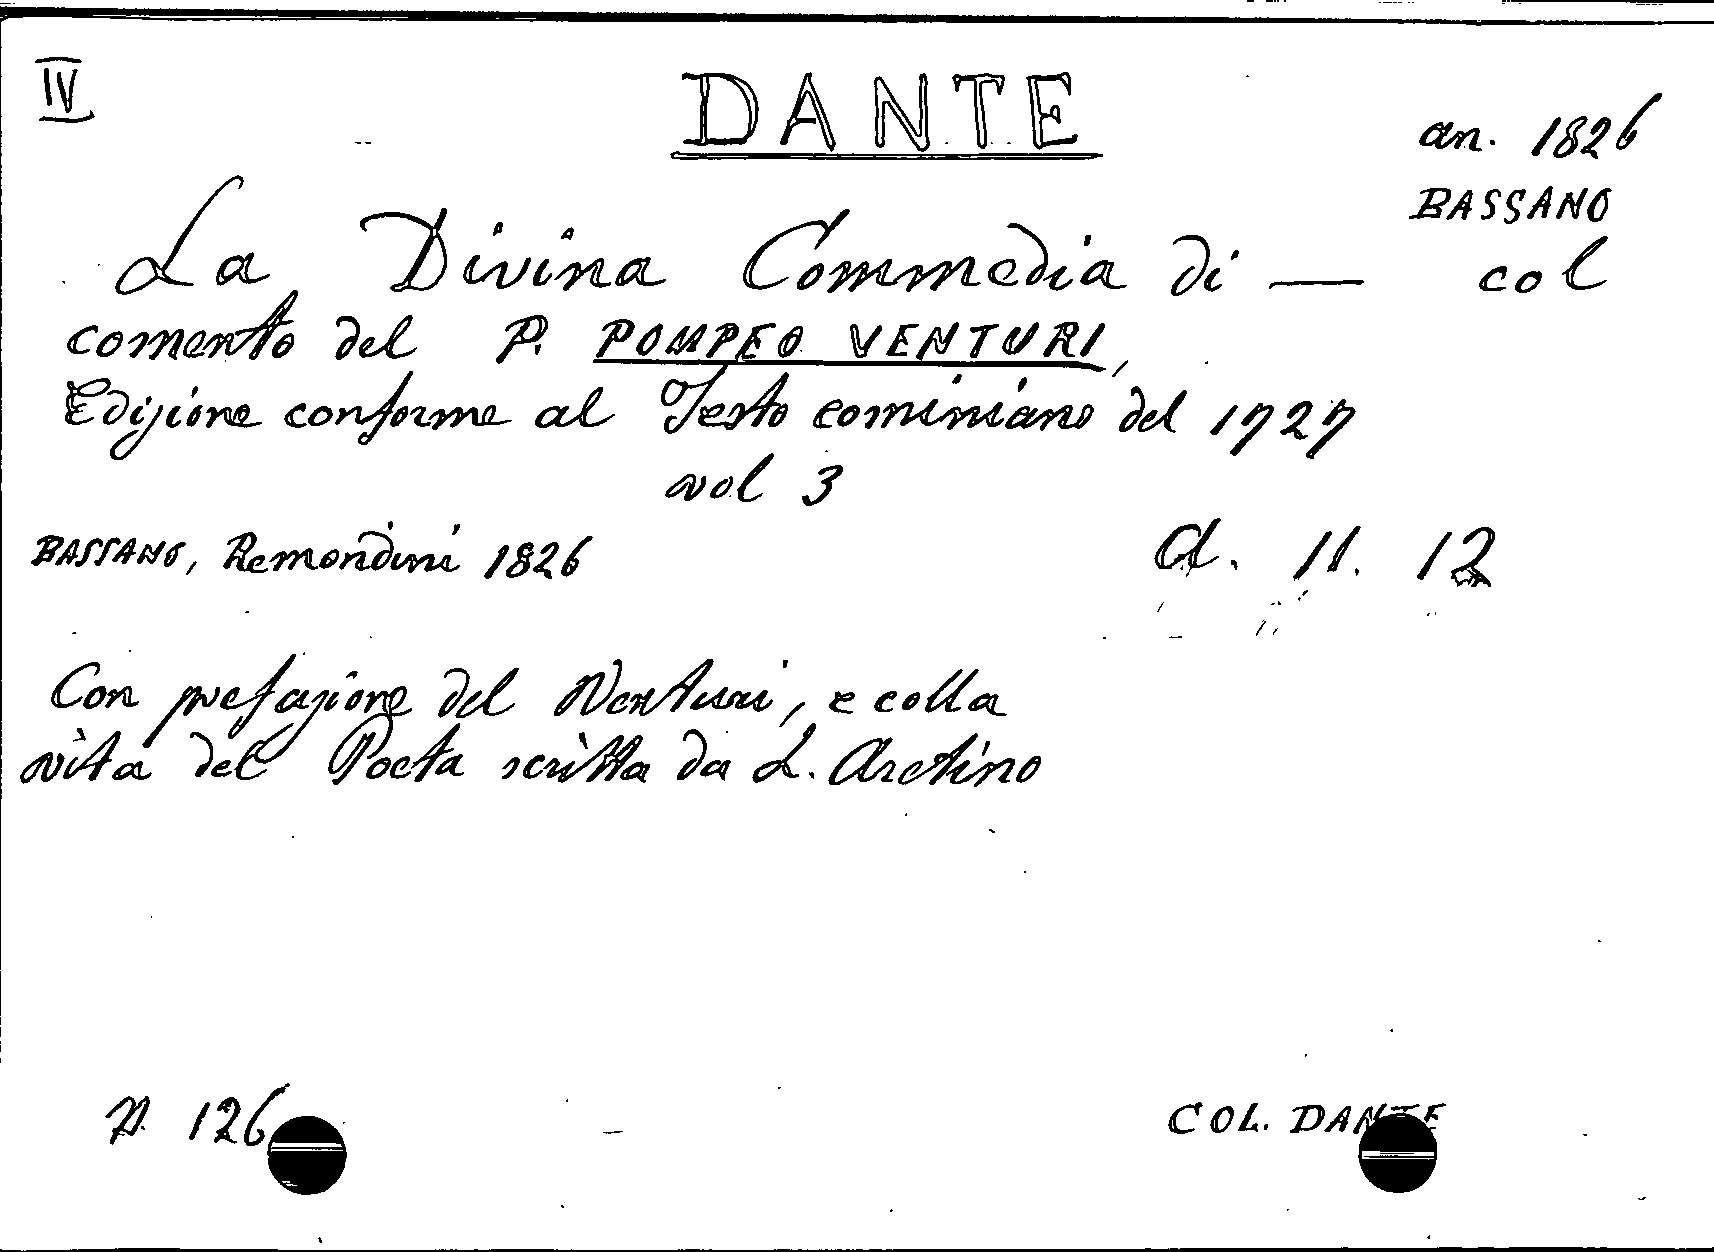 IV
DANTE
an. 1826
BASSANO
La Divina Commedia di — col
comento del P. POMPEO VENTURI,
Edizione conforme al Testo cominiano del 1727
vol 3
BASSANO, Remondini 1826
a. 11. 12
Con prefazione del Venturi, e colla
vita del Poeta scritta da L. Aretino
P. 126
COL. DANTE